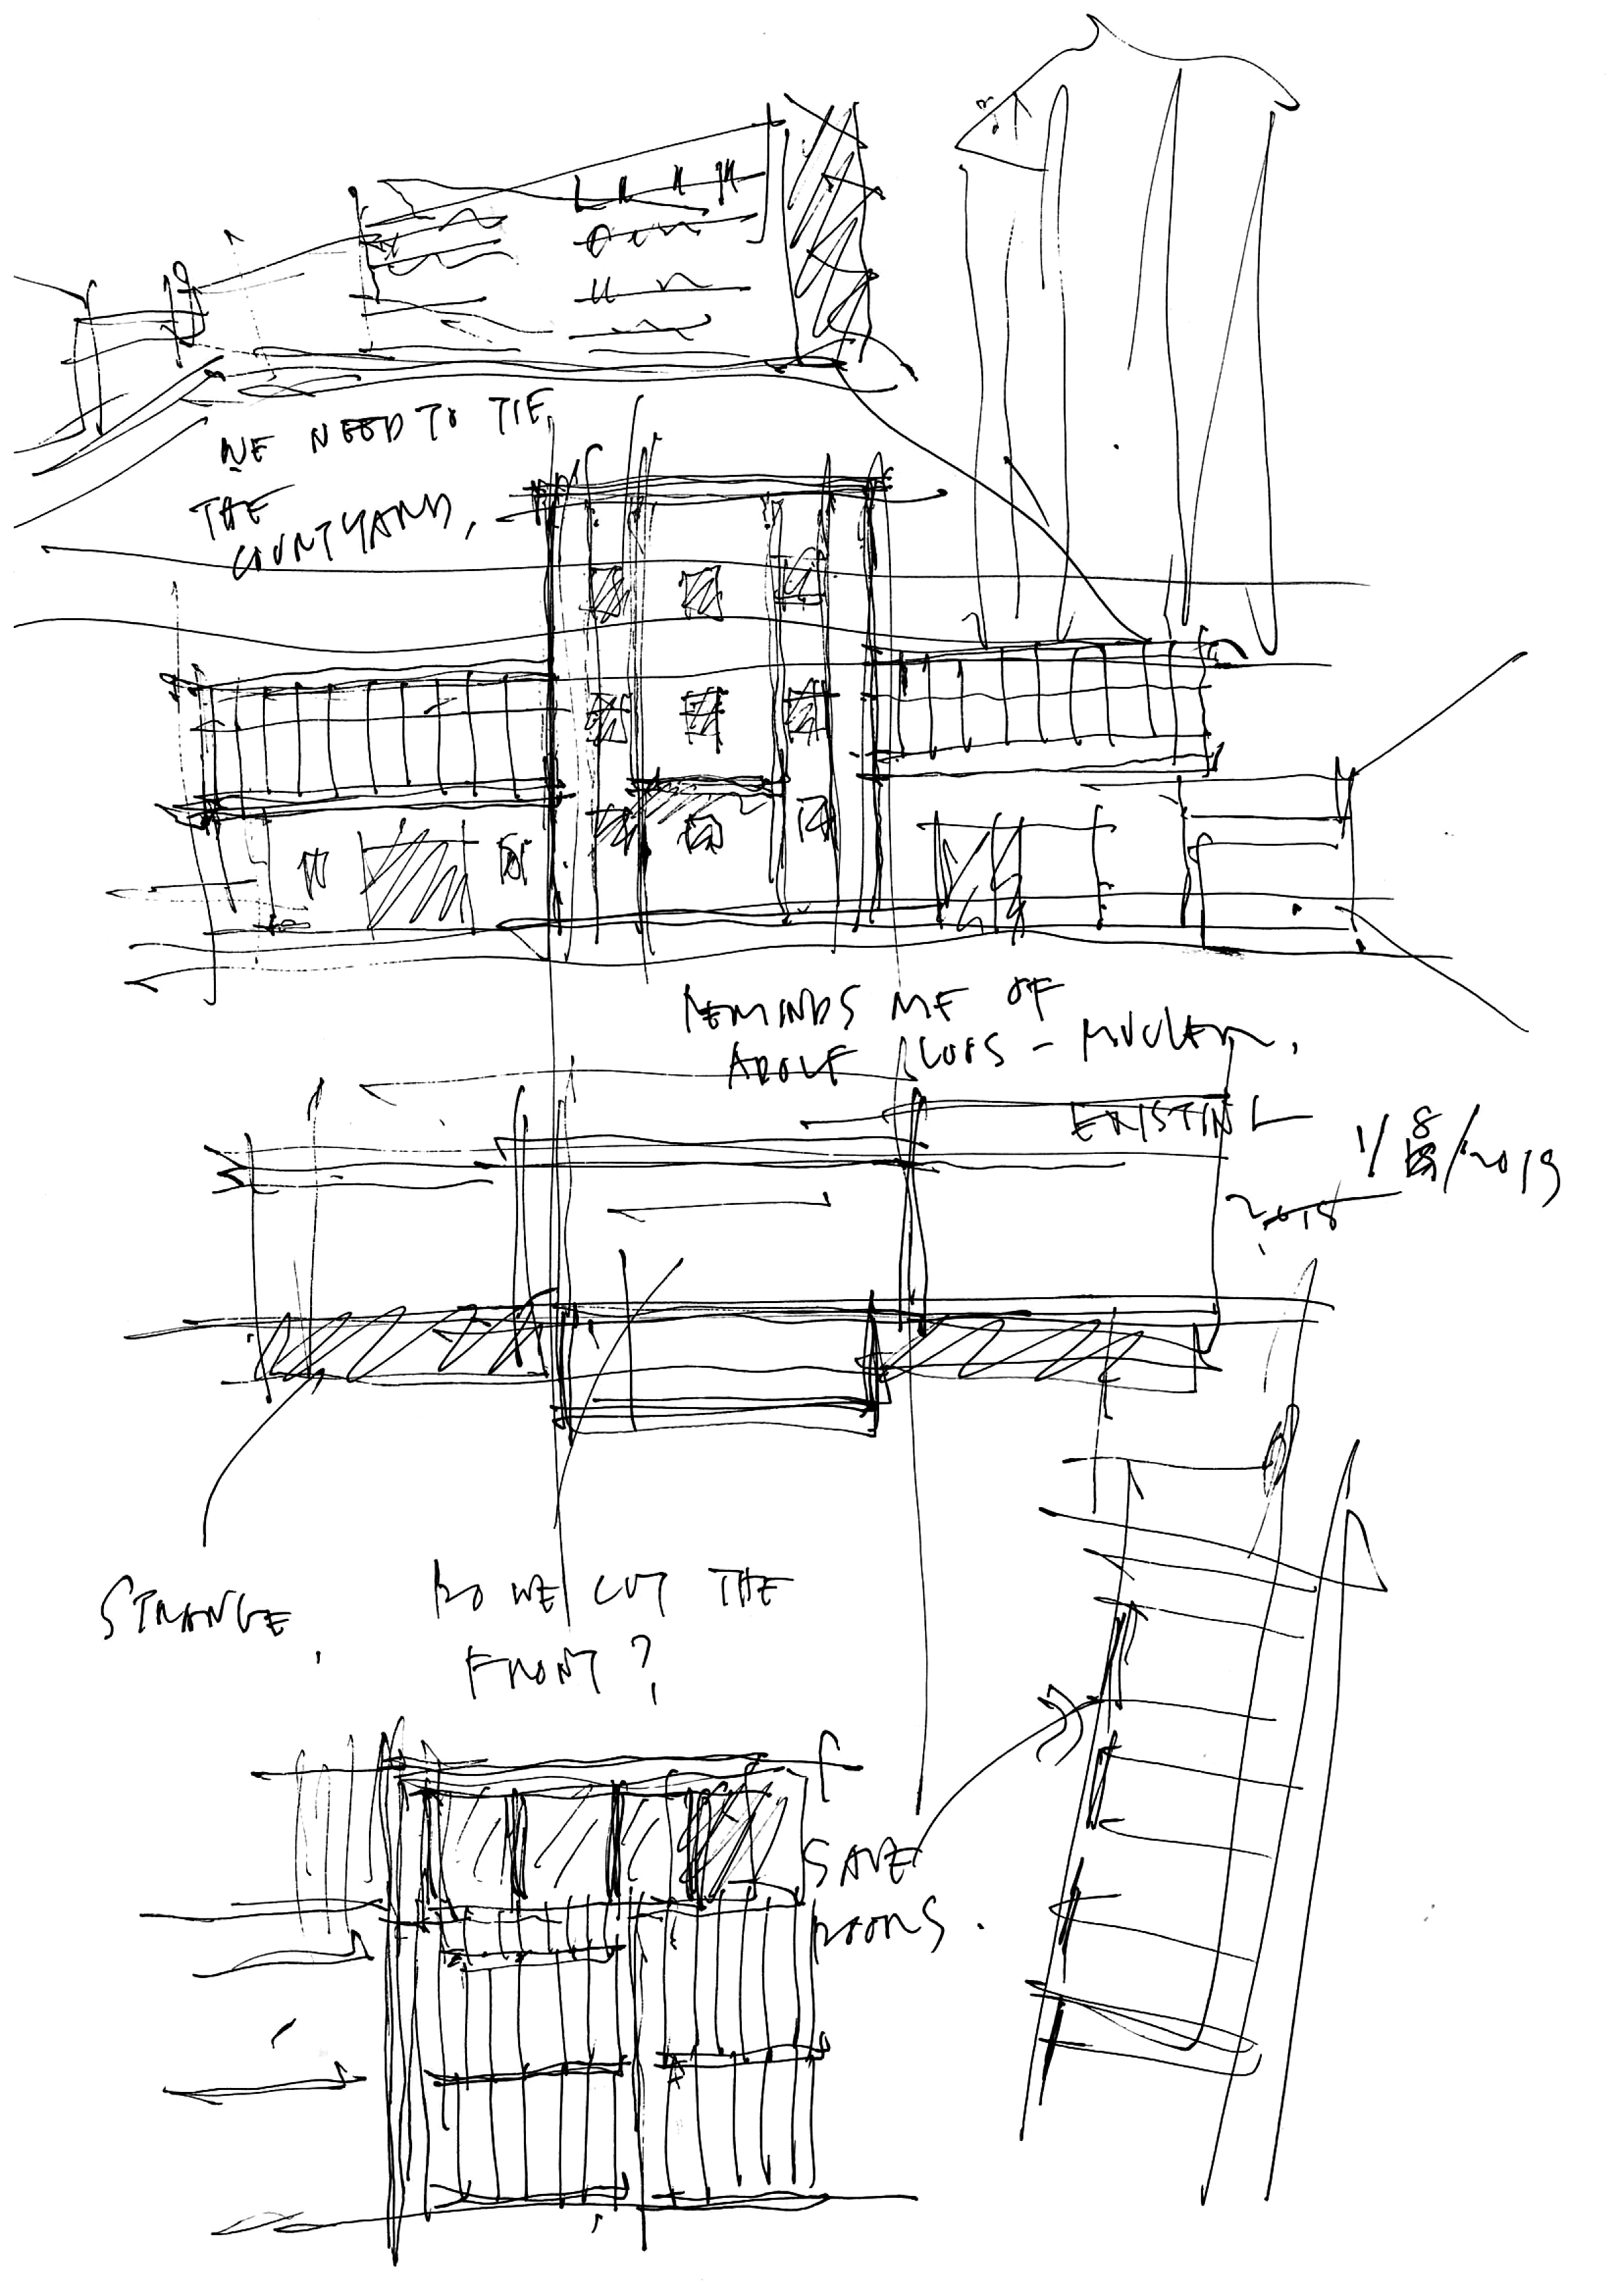 WE NEED TO TIE
THE
COURTYARD,
REMINDS ME OF
ADOLF LOOS - MULLER.
EXISTING
1/8/2019
2018
STRANGE.
DO WE CUT THE
FRONT?
SAVE
DOORS.